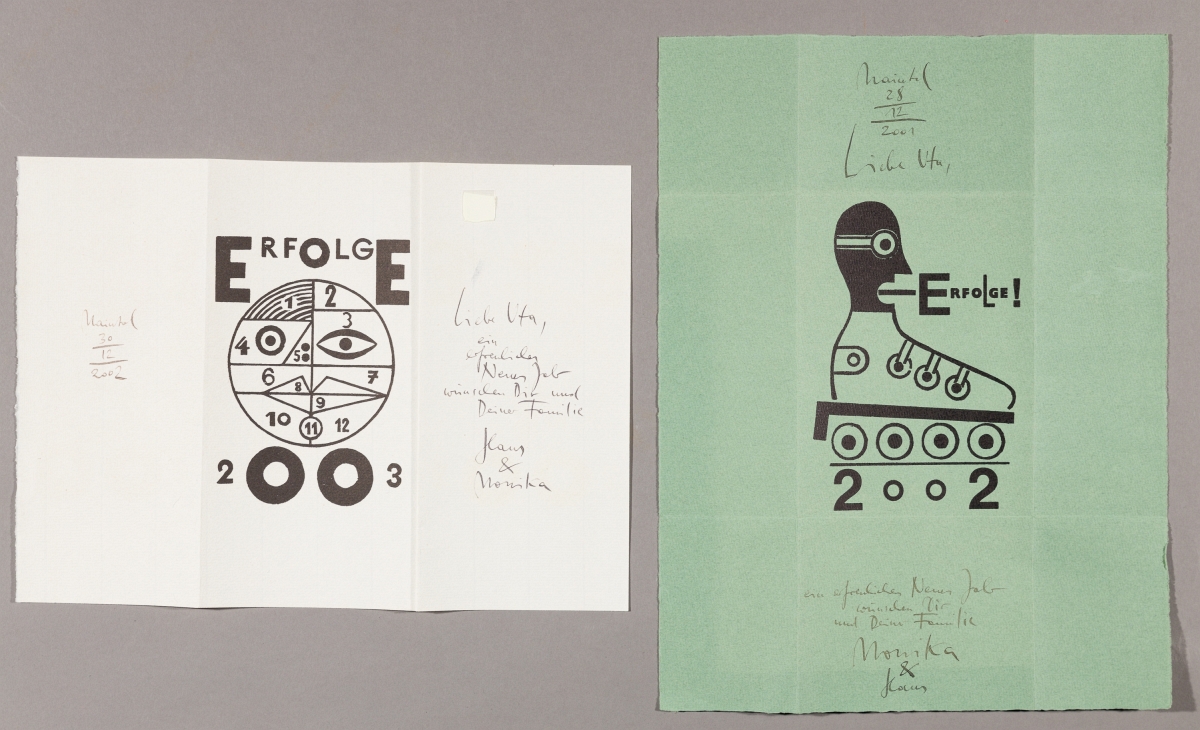 ERFOLGE
1
2
3
4
5
6
7
8
9
10
11
12
2003
30
12
2002
Liebe Uta,
ein
erfreuliches
Neues Jahr
wünschen Dir und
Deiner Familie
Klaus
&
Monika
28
12
2001
Liebe Uta,
ERFOLGE!
2002
ein erfreuliches Neues Jahr
wünschen Dir
und Deiner Familie
Monika
&
Klaus